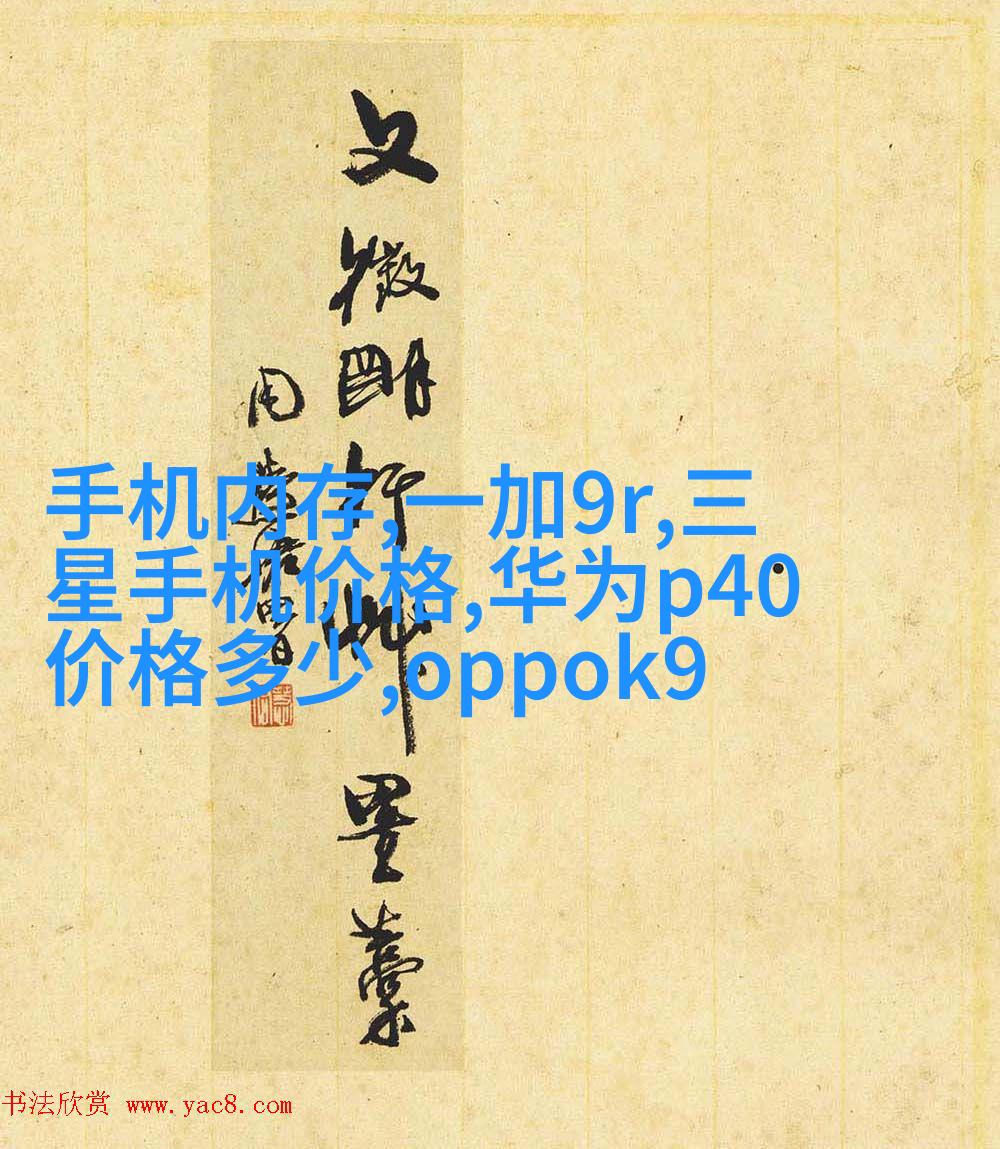 文徵明行书墨藁
周
手机内存,一加9r,三
星手机价格,华为p40
价格多少,oppok9
书法欣赏 www.yac8.com